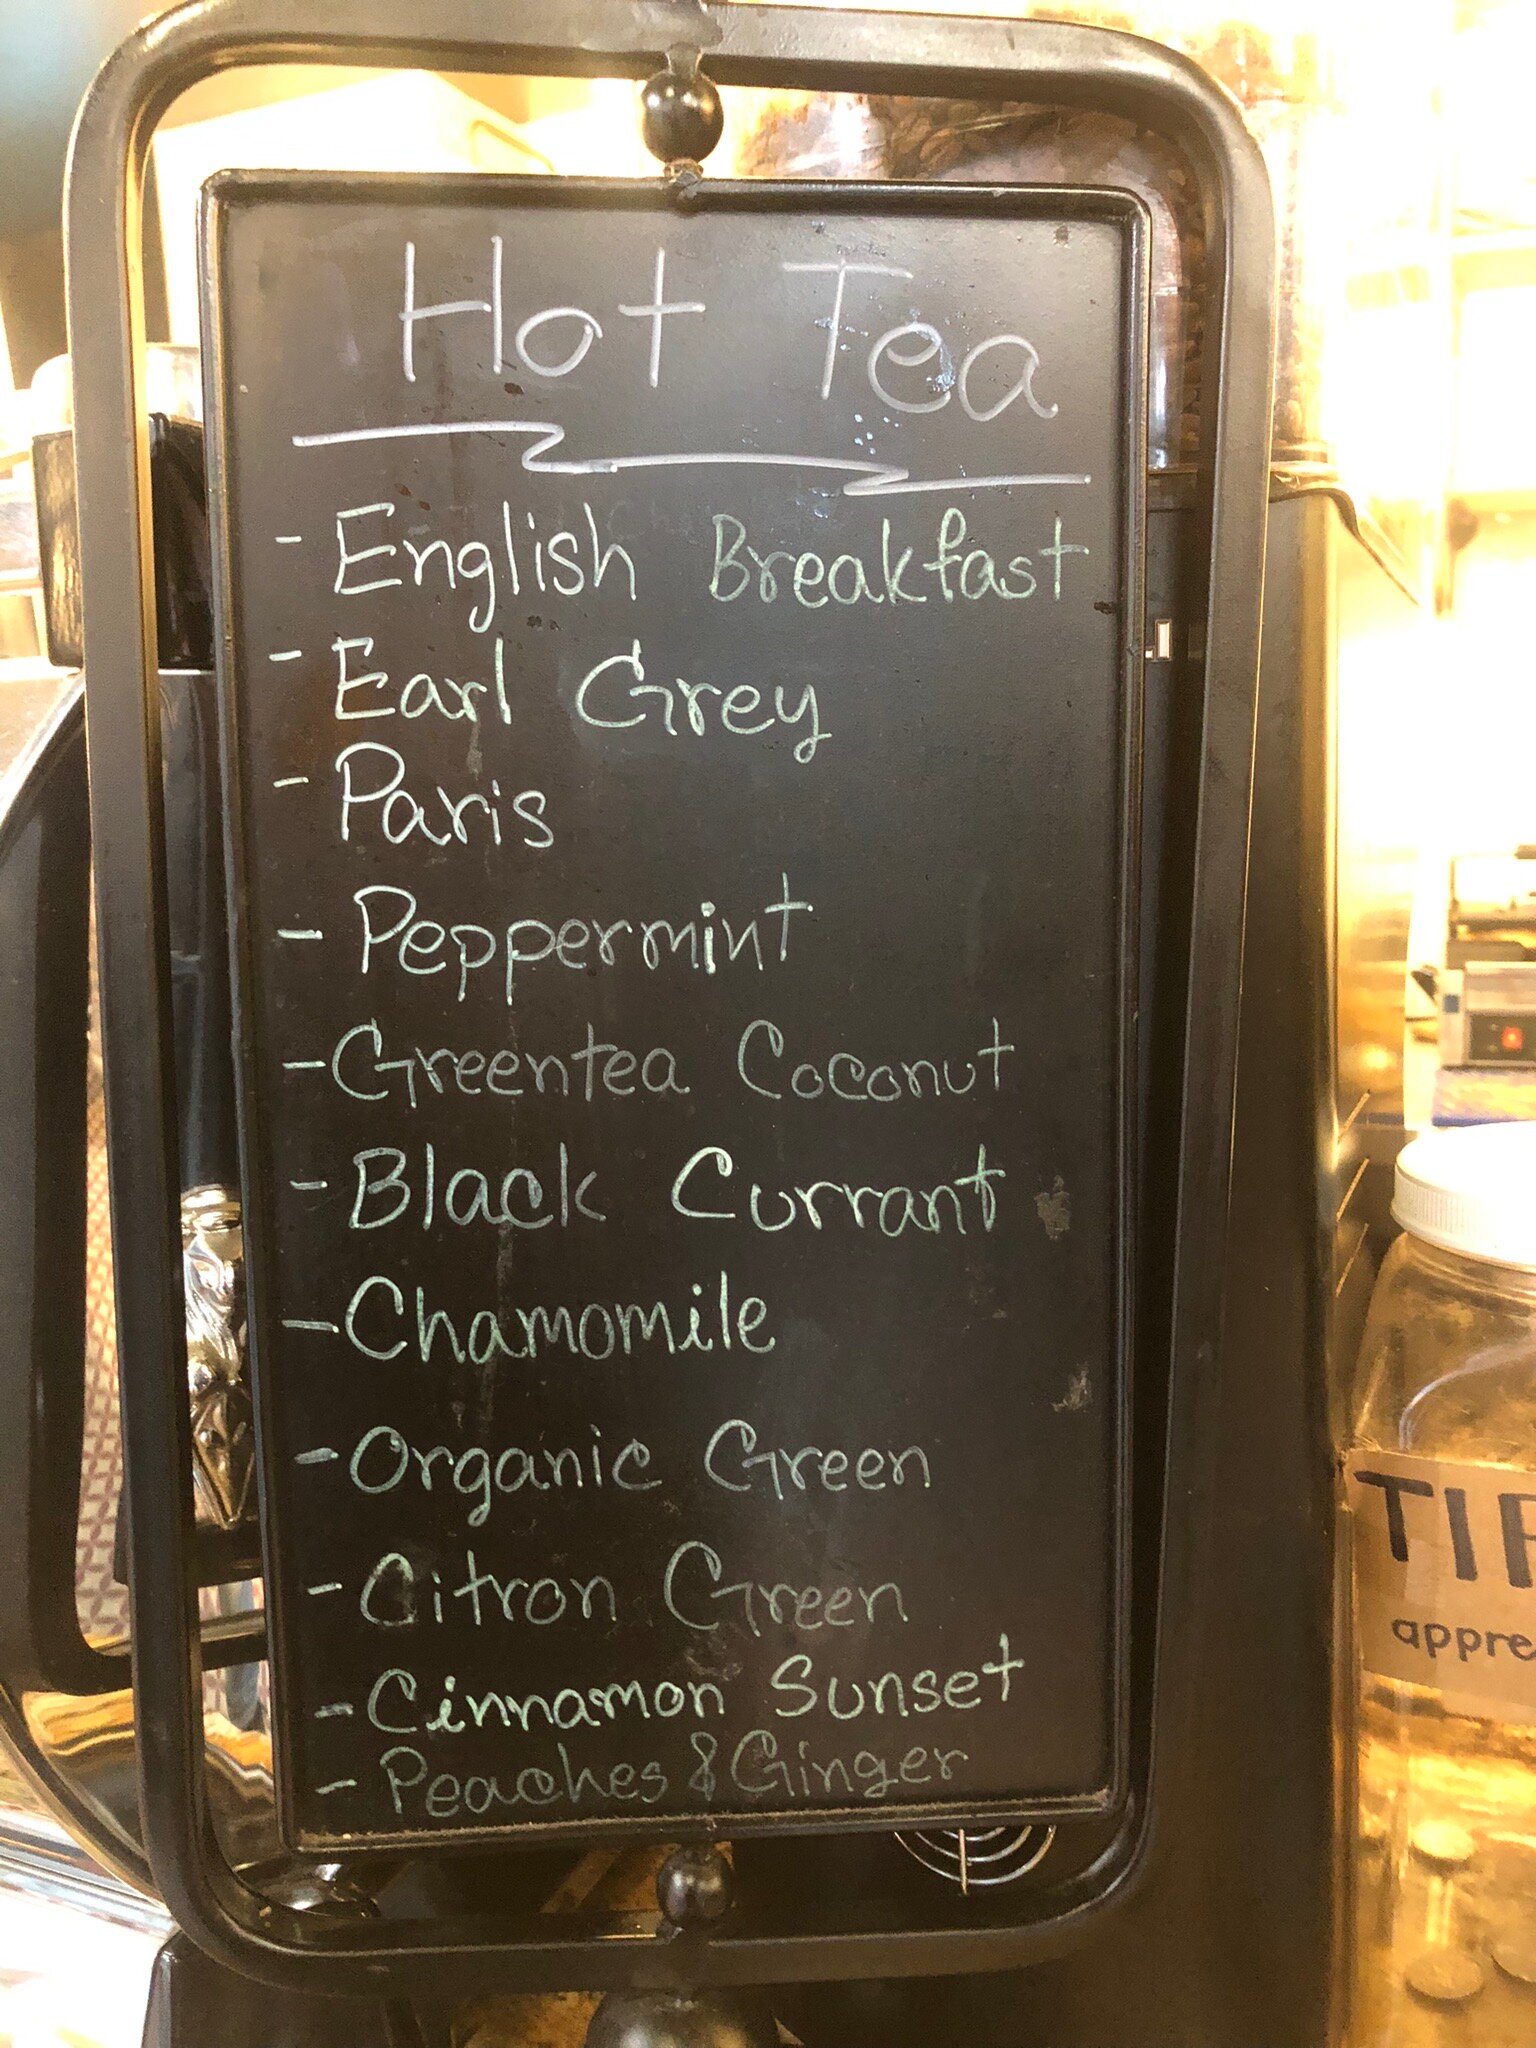 Hot Tea
- English Breakfast
- Earl Grey
- Paris
- Peppermint
- Greentea Coconut
- Black Currant
- Chamomile
- Organic Green
- Citron Green
- Cinnamon Sunset
- Peaches & Ginger
TIP
appre